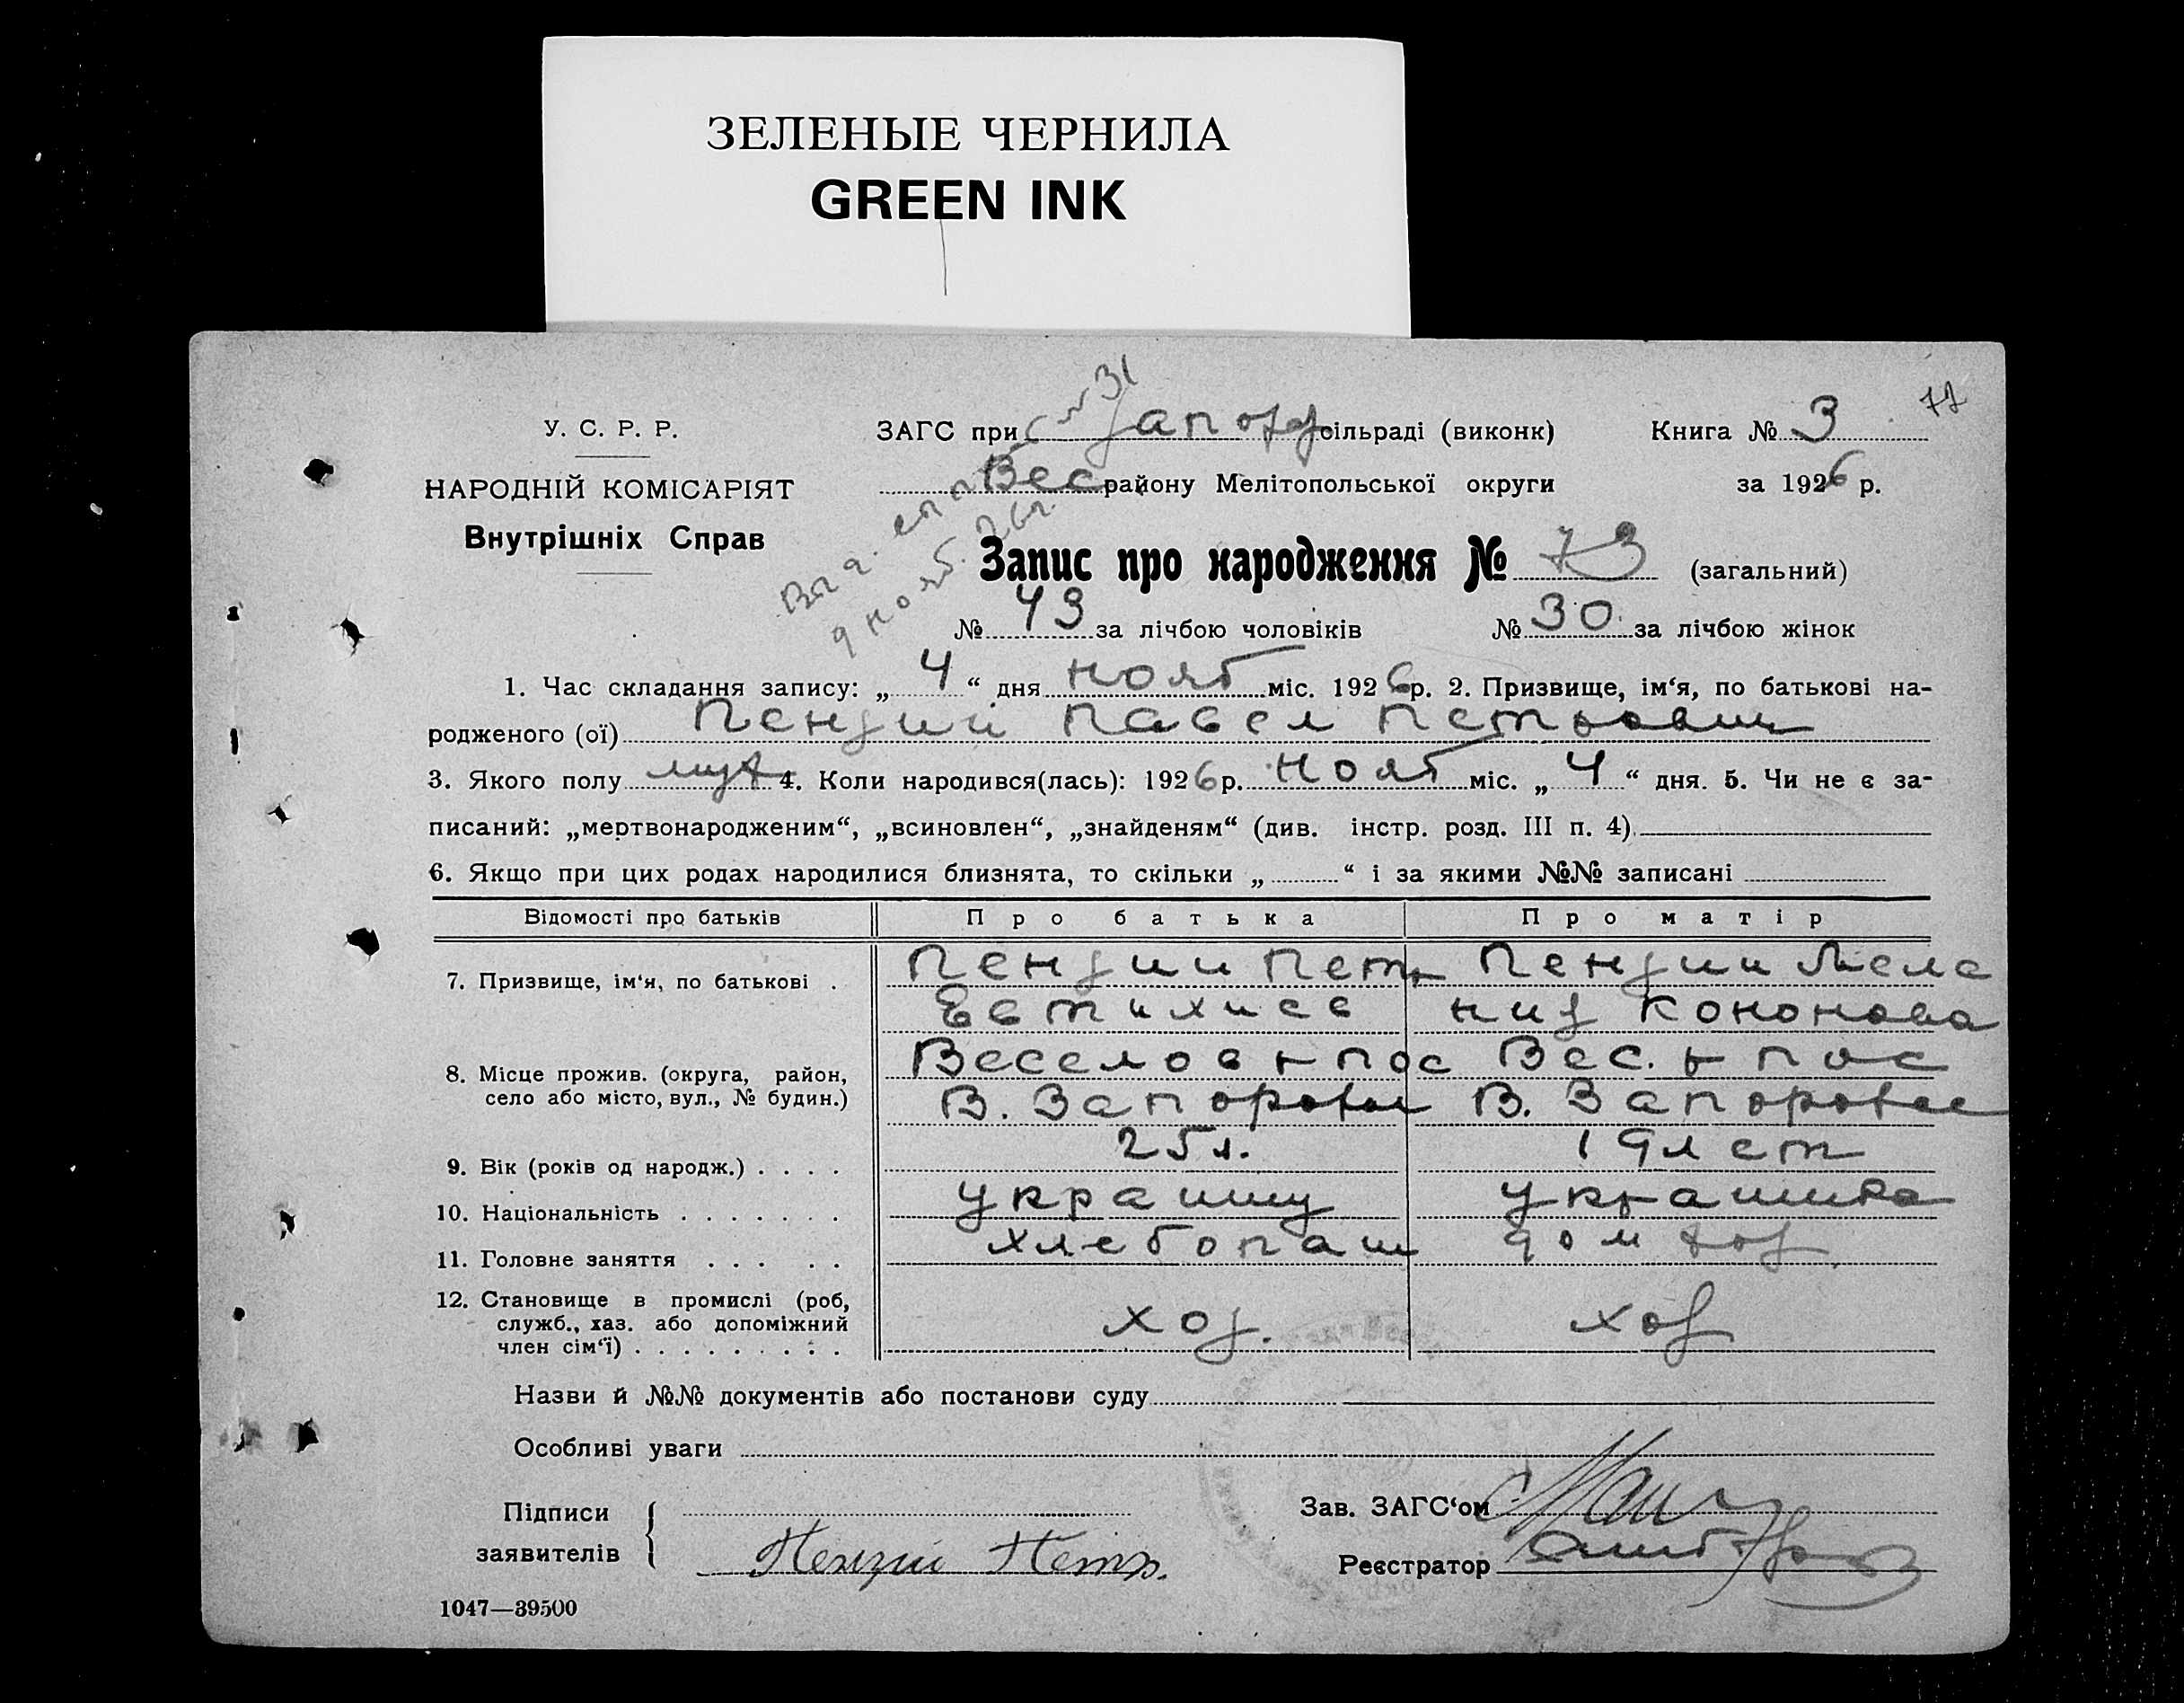 ЗЕЛЕНЫЕ ЧЕРНИЛА
GREEN INK
77
У. С. Р. Р.
НАРОДНІЙ КОМІСАРІЯТ
Внутрішніх Справ
ЗАГС при сільраді (виконк)
Книга № 3
Вес району Мелітопольської округи
за 1926 р.
Запис про народження № 73 (загальний)
№ 43 за лічбою чоловіків № 30 за лічбою жінок
1. Час складання запису: „ 4 “ дня нояб міс. 1926 р. 2. Призвище, ім‘я, по батькові на-
родженого (ої) Пензий Павел Петрович
3. Якого полу муж 4. Коли народився(лась): 1926 р. Нояб міс. „ 4 “ дня. 5. Чи не є за-
писаний: „мертвонародженим“, „всиновлен“, „знайденям“ (див. інстр. розд. III п. 4)
6. Якщо при цих родах народилися близнята, то скільки „ “ і за якими №№ записані
Відомості про батьків Про батька Про матір
7. Призвище, ім‘я, по батькові . Пензии Петр Пензии Мела
Евтихиев низ Кононова
8. Місце прожив. (округа, район, Веселов р пос Вес. р пос
село або місто, вул., № будин.) В. Запорожье В. Запорожье
9. Вік (років од народж.) . . . . 25 л. 19 лет
10. Національність . . . . . . . украинц украинка
11. Головне заняття . . . . . хлебопаш дом хоз
12. Становище в промислі (роб, служб., хаз. або допоміжний член сім‘ї) . . . . . . . . . хоз. хоз
Назви й №№ документів або постанови суду
Особливі уваги
Підписи
заявителів
Пензий Петр.
Зав. ЗАГС‘ом
Реєстратор
1047—39500